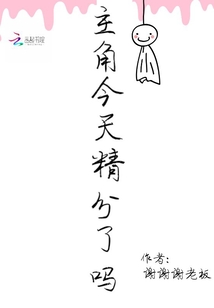 主角今天精分了吗
作者：
谢谢谢老板